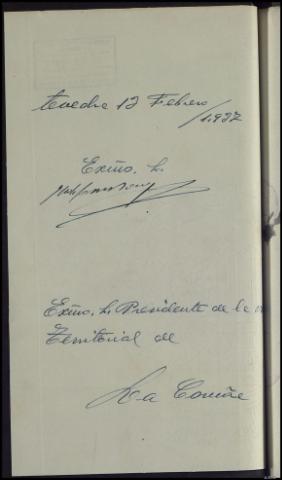 tevedra 12 Febrero
/1.937
Exmo. Sr.
Exmo. Sr. Presidente de la
Territorial de
La Coruña